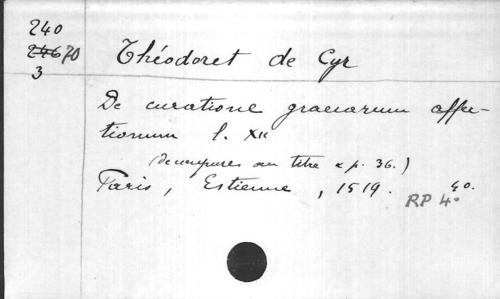 240
24670
3
Théodoret de Cyr
De curatione graecarum affec-
tionum l. XII
(découpures au titre & p. 36.)
Paris, Estienne, 1519. 40.
RP 4°